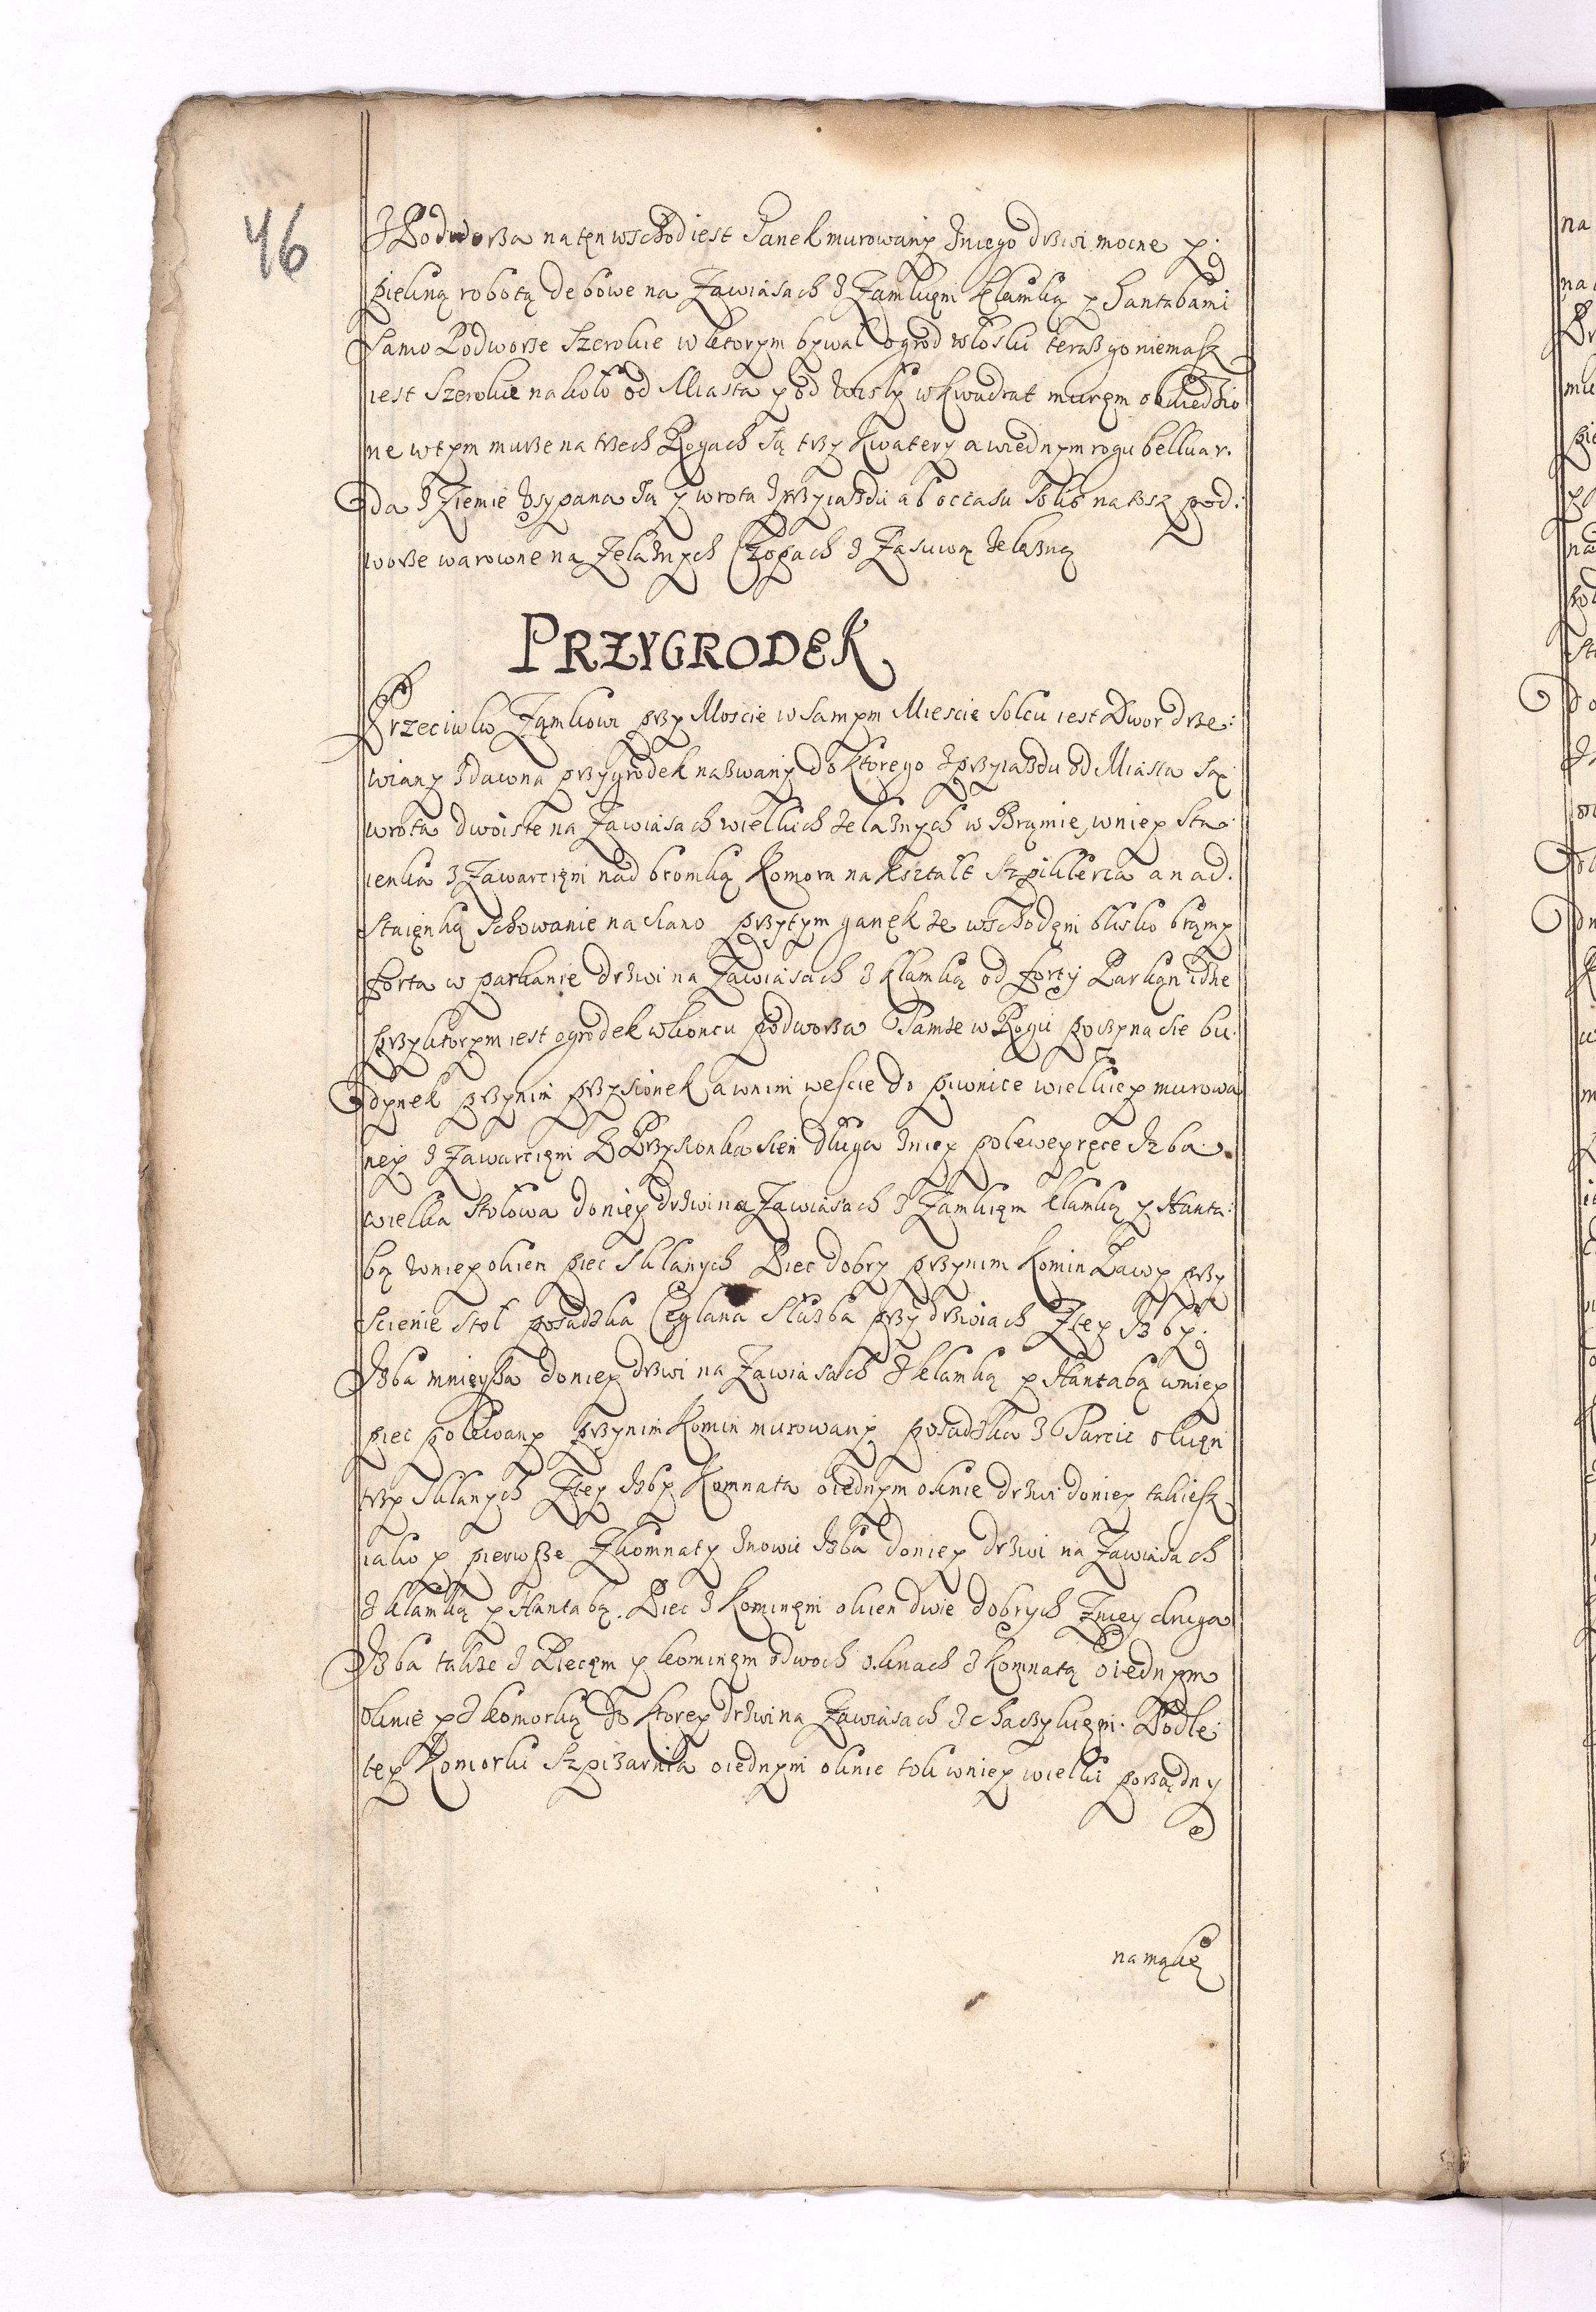 46
Z Podworza na ten wschod iest Ganek murowany z niego drzwi mocne y
piekną robotą debowe na Zawiasach z Zamkięm klamką y hantabami
Samo Podworze Szerokie w ktorym bywał ogrod włoski teraz go niemasz
iest Szerokie na koło od Miasta y od Wisły w kwadrat muręm obwiedzio
ne w tym murze na trzech Rogach są trzy kwatery a w iednym rogu belluar.
da z Ziemie Usypana Są y wrota z przyiazdu ab occasu Solis na tosz pod:
worze warowne na Zelaznych Czopach z Zasuwą Zelazną
PRZYGRODEK
Przeciwko Zamkowi przy Moscie w samym Miescie Solcu iest Dwor drze:
wiany zdawna przygrodek nazwany do ktorego z przyiazdu od Miasta Są
wrota dwoiste na Zawiasach wielkich zelaznych w Bramie, w niey Sta
ienka z Zawarciem nad bromką Komora na kształt Szpiklerza a nad.
Staięnką Schowanie na siano przytym ganęk ze wschodęm blisko bramy
forta w parkanie drzwi na Zawiasach z klamką od forty Parkan idzie
przy ktorym iest ogrodek w koncu podworza Tamze w Rogu poczyna sie bu.
dynek przy nim przysionek a w nim weście do piwnice wielkiey murowa
ney z Zawarcięm Z Przysionka sien długa z niey po lewey ręce Izba
wielka Stołowa do niey drzwi na Zawiasach z Zamkięm klamką y Hanta:
bą w niey okien piec Sklanych Piec dobry przy nim Komin Ławy przy
scienie stoł posadzka Ceglana Służba przy drzwiach Z tey Izby
Izba mnieysza do niey drzwi na Zawiasach z klamką y Hantabą w niey
piec polewany przy nim Komin murowany posadzka z Tarcic okięn
trzy Sklanych Z tey Izby Komnata o iednym oknie drzwi do niey takiesz
iako y pierwsze Z komnaty znowu Izba do niey drzwi na Zawiasach
z klamką y Hantabą. Piec z Kominęm okien dwie dobrych Z niey druga
Izba takze z Piecęm y kominęm o dwoch oknach z Komnatą o iednym
oknie y z komorką do ktorey drzwi na Zawiasach z chaczykięm. Podle
tey Komorki Szpizarnia o iednym oknie tok w niey wielki porządny
na mąkę